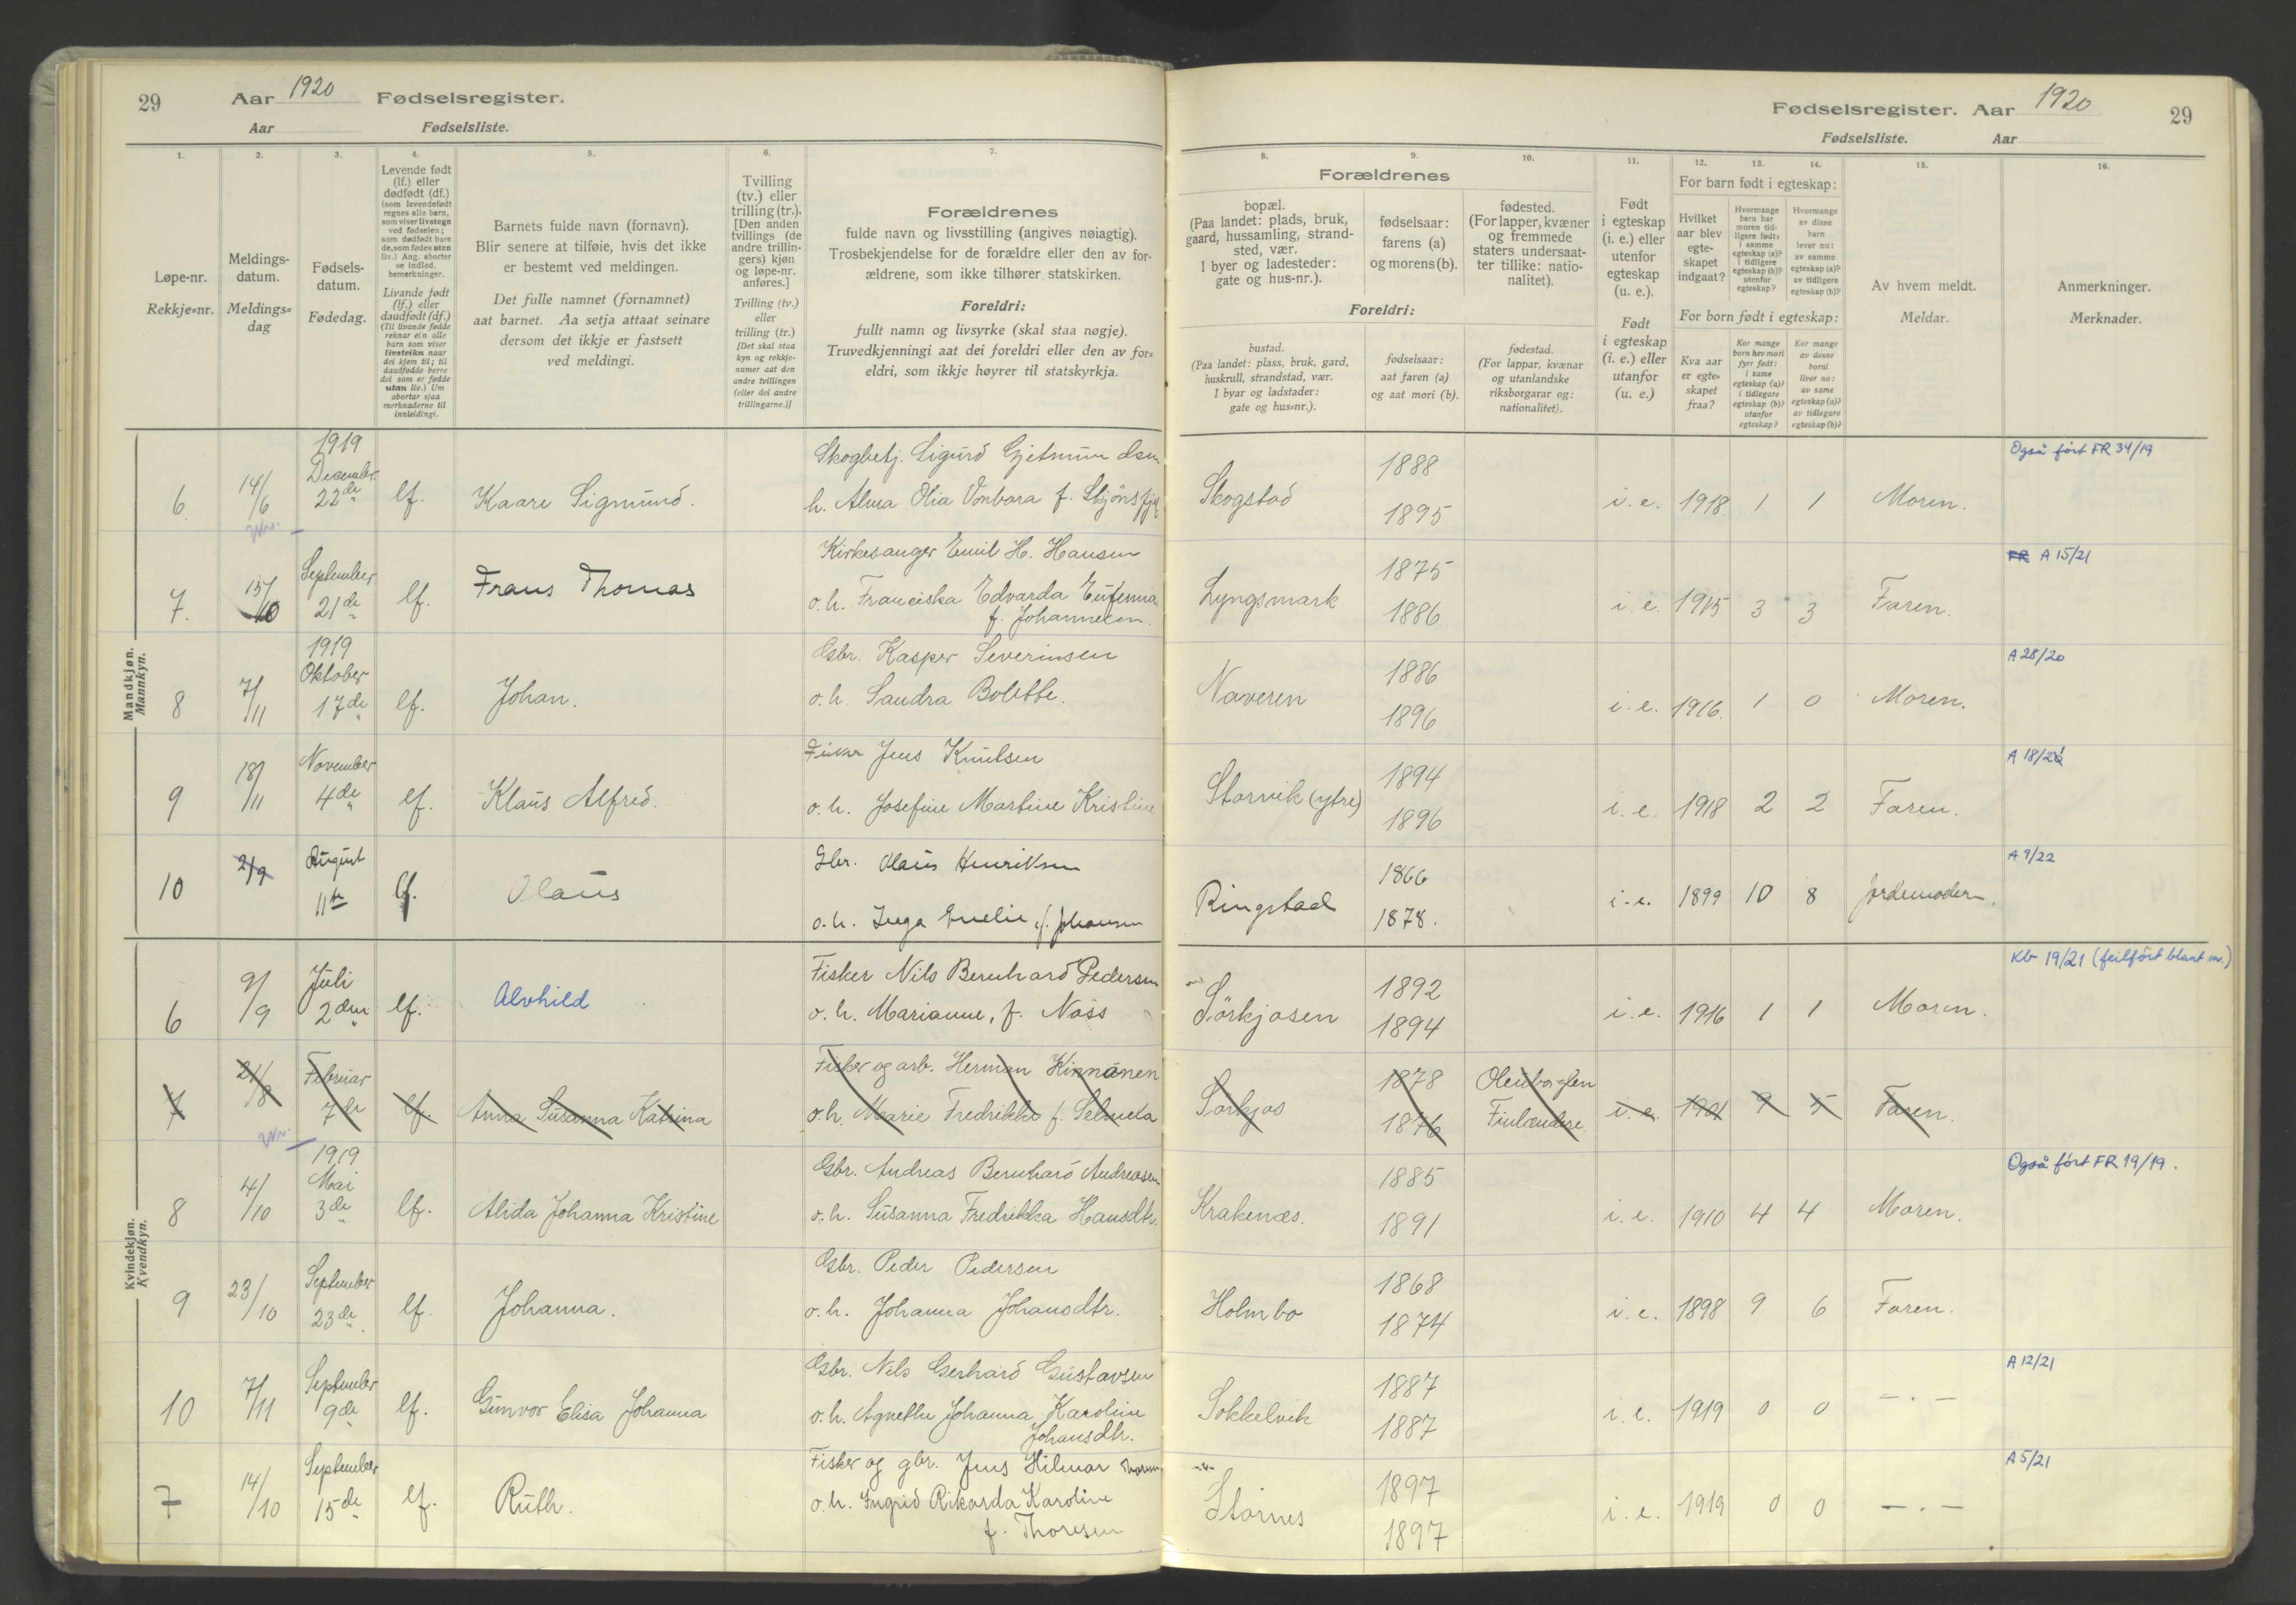 29 Aar 1920 Fødselsregister.
Aar Fødselsliste.
1. 2. 3. 4. 5. 6. 7.
Løpe-nr.
Rekkje=nr.
Meldings-
datum.
Meldings=
dag
Fødsels-
datum.
Fødedag.
Levende født
(lf.) eller
dødfødt (df.)
(som levendefødt
regnes alle barn,
som viser livstegn
ved fødselen;
som dødfødt bare
de, som fødes uten
liv.) Ang. aborter
se indled.
bemerkninger.
Livande født
(lf.) eller
daudfødt (df.)
(Til livande fødde
reknar ein alle
barn som viser
livsteikn naar
dei kjem til; til
daudfødde berre
dei som er fødde
utan liv.) Um
abortar sjaa
merknaderne til
innleidingi.
Barnets fulde navn (fornavn).
Blir senere at tilføie, hvis det ikke
er bestemt ved meldingen.
Det fulle namnet (fornamnet)
aat barnet. Aa setja attaat seinare
dersom det ikkje er fastsett
ved meldingi.
Tvilling
(tv.) eller
trilling (tr.).
[Den anden
tvillings (de
andre trillin-
gers) kjøn
og løpe-nr.
anføres.]
Tvilling (tv.)
eller
trilling (tr.)
[Det skal staa
kyn og rekkje-
numer aat den
andre tvillingen
(eller dei andre
trillingarne.)]
Forældrenes
fulde navn og livsstilling (angives nøiagtig).
Trosbekjendelse for de forældre eller den av for-
ældrene, som ikke tilhører statskirken.
Foreldri:
fullt namn og livsyrke (skal staa nøgje).
Truvedkjenningi aat dei foreldri eller den av for=
eldri, som ikkje høyrer til statskyrkja.
Mandkjøn.
Mannkyn.
6 14/6 1919 December 22de lf. Kaare Sigmund.
Skogbetj. Sigurd Gjetmundsen
h. Alma Olia Vonbara f.
7. 15/10 September 21de lf. Frans Thomas
Kirkesanger Emil H. Hansen
o.h. Franciska Edvarda Eufemia
f. Johannesen.
8 7/11 1919 Oktober 17de lf. Johan.
Gbr. Kasper Severinsen
o.h. Sandra Bolette.
9 18/11 November 4de lf. Klaus Alfred.
Fisker Jens Knutsen
o.h. Josefine Martine Kristine
10 2/9 August 11te lf. Olaus
Gbr. Olaus Henriksen
o.h. Inga Emelie f. Johansen
Kvindekjøn.
Kvendkyn.
6 9/9 Juli 2den lf. Alvhild
Fisker Nils Bernhard Pedersen
o.h. Marianne, f. Näss
7 21/8 Februar 7de lf. Anna Susanna Katrina
Fisker og arb. Herman Kinnänen
o.h. Marie Fredrikke f.
8 4/10 1919 Mai 3de lf. Alida Johanna Kristine
Gbr. Andreas Bernhard Andreasen
o.h. Susanna Fredrikka Hansdtr.
9 23/10 September 23de lf. Johanna.
Gbr. Peder Pedersen
o.h. Johanna Johansdtr.
10 7/11 September 9de lf. Gunvor Elisa Johanna
Gbr. Nils Gerhard Gustavsen
o.h. Agnethe Johanna Karoline
Johansdtr.
7 14/10 September 15de lf. Ruth.
Fisker og gbr. Jens Hilmar
o.h. Ingrid Rikarda Karoline
f. Thoresen
Fødselsregister. Aar 1920 29
Fødselsliste. Aar
8. 9. 10. 11. 12. 13. 14. 15. 16.
Forældrenes
bopæl.
(Paa landet: plads, bruk,
gaard, hussamling, strand-
sted, vær.
I byer og ladesteder:
gate og hus-nr.).
fødselsaar:
farens (a)
og morens (b).
fødested.
(For lapper, kvæner
og fremmede
staters undersaat-
ter tillike: natio-
nalitet).
Foreldri:
bustad.
(Paa landet: plass, bruk, gard,
huskrull, strandstad, vær.
I byar og ladstader:
gate og hus=nr.).
fødselsaar:
aat faren (a)
og aat mori (b).
fødestad.
(For lappar, kvænar
og utanlandske
riksborgarar og:
nationalitet).
Født
i egteskap
(i. e.) eller
utenfor
egteskap
(u. e.).
Født
i egteskap
(i. e.) eller
utanfor
(u. e.)
For barn født i egteskap:
Hvilket
aar blev
egte-
skapet
indgaat?
Hvormange
barn har
moren tid-
ligere født:
i samme
egteskap (a)?
i tidligere
egteskap (b)?
utenfor
egteskap?
Hvormange
av disse
barn
lever nu:
av samme
egteskap (a)?
av tidligere
egteskap (b)?
For born født i egteskap:
Kva aar
er egte=
skapet
fraa?
Kor mange
born hev mori
fyrr født:
i same
egteskap (a)?
i tidlegare
egteskap (b)?
utanfor
egteskap?
Kor mange
av desse
borni
liver no:
av same
egteskap (a)?
av tidlegare
egteskap (b)?
Av hvem meldt.
Meldar.
Anmerkninger.
Merknader.
Skogstad 1888 1895 i.e. 1918 1 1 Moren. Også ført FR 34/19
Lyngsmark 1875 1886 i.e. 1915 3 3 Faren. FR A 15/21
Naveren 1886 1896 i.e. 1916. 1 0 Moren. A 28/20
Storvik (ytre) 1894 1896 i.e. 1918 2 2 Faren. A 18/20
Ringstad 1866 1878. i.e. 1899 10 8 Jordemoder. A 9/22
Sörkjosen 1892 1894 i.e. 1916 1 1 Moren. Kb 19/21 (feilført blant m.)
Sörkjos 1878 1876 Finlændere. i.e. 1901 9 5 Faren.
Krakenæs. 1885 1891 i.e. 1910 4 4 Moren. Også ført FR 19/19.
Holmbo 1868 1874 i.e. 1898 9 6 Faren.
Sokkelvik 1887 1887 i.e. 1919 0 0 — . — A 12/21
Stornes 1897 1897 i.e. 1919 0 0 — . — A 5/21